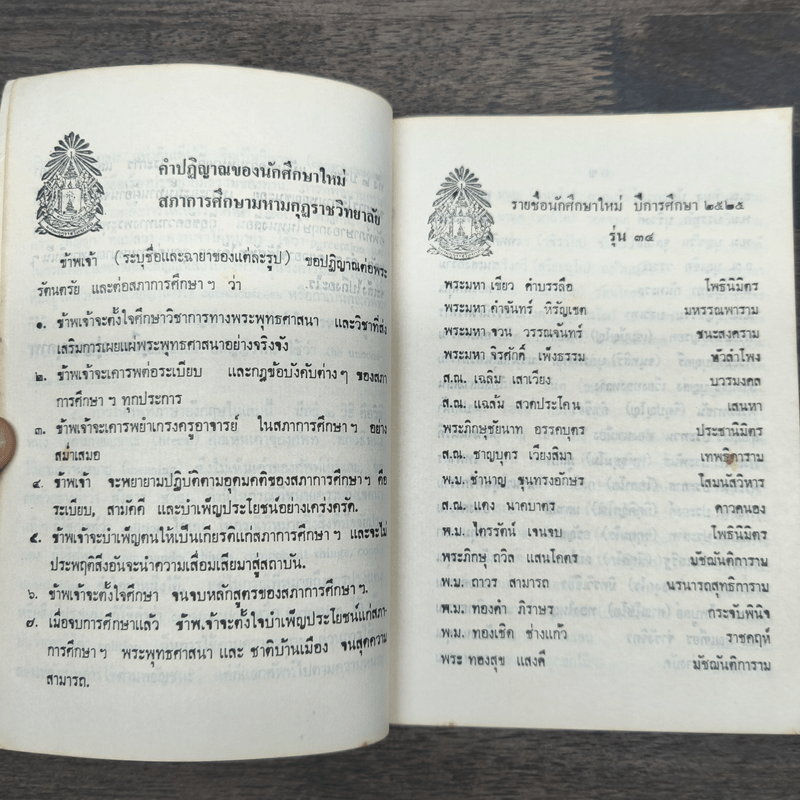 คำปฏิญาณของนักศึกษาใหม่
สภาการศึกษามหามกุฏราชวิทยาลัย
ข้าพเจ้า (ระบุชื่อและฉายาของแต่ละรูป) ขอปฏิญาณต่อพระ
รัตนตรัย และต่อสภาการศึกษา ฯ ว่า
๑. ข้าพเจ้าจะตั้งใจศึกษาวิชาการทางพระพุทธศาสนา และวิชาที่ส่ง
เสริมการเผยแผ่พระพุทธศาสนาอย่างจริงจัง
๒. ข้าพเจ้าจะเคารพต่อระเบียบ และกฎข้อบังคับต่าง ๆ ของสภา
การศึกษา ฯ ทุกประการ
๓. ข้าพเจ้าจะเคารพยำเกรงครูอาจารย์ ในสภาการศึกษา ฯ อย่าง
สม่ำเสมอ
๔. ข้าพเจ้า จะพยายามปฏิบัติตามอุดมคติของสภาการศึกษา ฯ คือ
ระเบียบ, สามัคคี และบำเพ็ญประโยชน์อย่างเคร่งครัด.
๕. ข้าพเจ้าจะบำเพ็ญตนให้เป็นเกียรติแก่สภาการศึกษา ฯ และจะไม่
ประพฤติสิ่งอันจะนำความเสื่อมเสียมาสู่สถาบัน.
๖. ข้าพเจ้าจะตั้งใจศึกษา จนจบหลักสูตรของสภาการศึกษา ฯ.
๗. เมื่อจบการศึกษาแล้ว ข้าพเจ้าจะตั้งใจบำเพ็ญประโยชน์แก่สภา-
การศึกษา ฯ พระพุทธศาสนา และ ชาติบ้านเมือง จนสุดความ
สามารถ.
รายชื่อนักศึกษาใหม่ ปีการศึกษา ๒๕๒๕
รุ่น ๓๔
พระมหา เขียว คำบรรลือ โพธินิมิตร
พระมหา คำจันทร์ หิรัญเขต มหรรณพาราม
พระมหา จวน วรรณจันทร์ ชนะสงคราม
พระมหา จิรศักดิ์ เพ็งธรรม หัวลำโพง
ส.ณ. เฉลิม เสาเวียง บวรมงคล
ส.ณ. แฉล้ม สวดประโคน เสนหา
พระภิกษุชัยนาท อรรคบุตร ประชานิมิตร
ส.ณ. ชาญบุตร เวียงสิมา เทพธิดาราม
พ.ม. ชำนาญ ขุนทรงอักษร โสมนัสวิหาร
ส.ณ. แดง นาคบาตร ดาวคนอง
พ.ม. ไตรรัตน์ เจนจบ โพธินิมิตร
พระภิกษุ ถวิล แสนโคตร มัชฌันติการาม
พ.ม. ถาวร สามารถ นรนารถสุทธิการาม
พ.ม. ทองคำ ภิราษร กระจับพินิจ
พ.ม. ทองเชิด ช่างแก้ว ราชคฤห์
พระ ทองสุข แสงดี มัชฌันติการาม